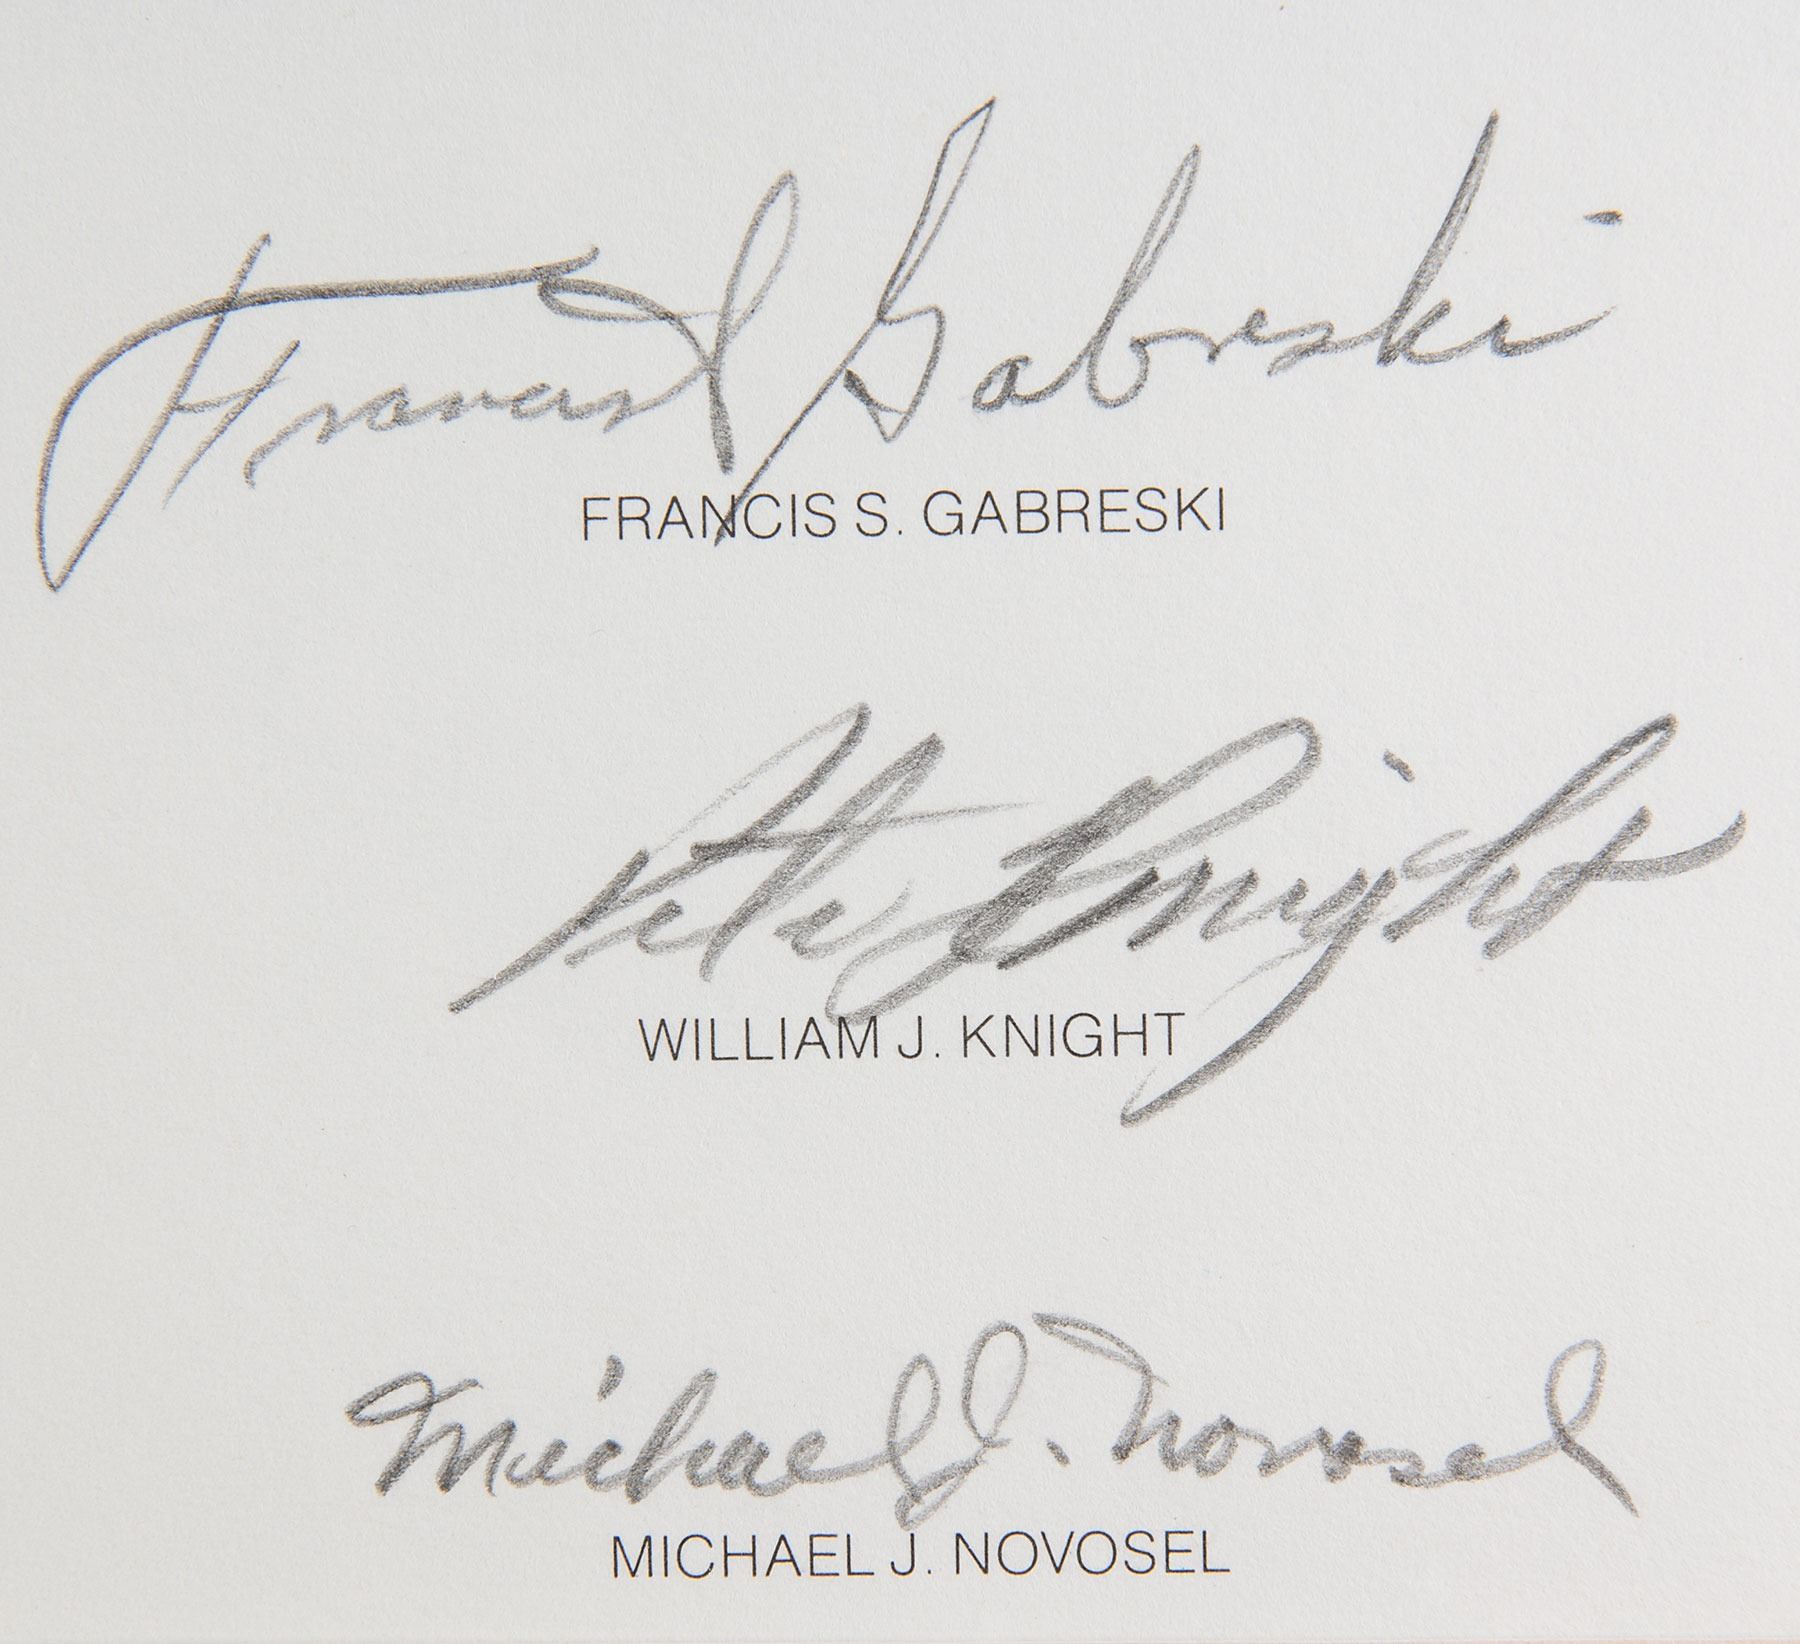 Francis S Gabreski
FRANCIS S. GABRESKI
Pete Knight
WILLIAM J. KNIGHT
Michael J. Novosel
MICHAEL J. NOVOSEL